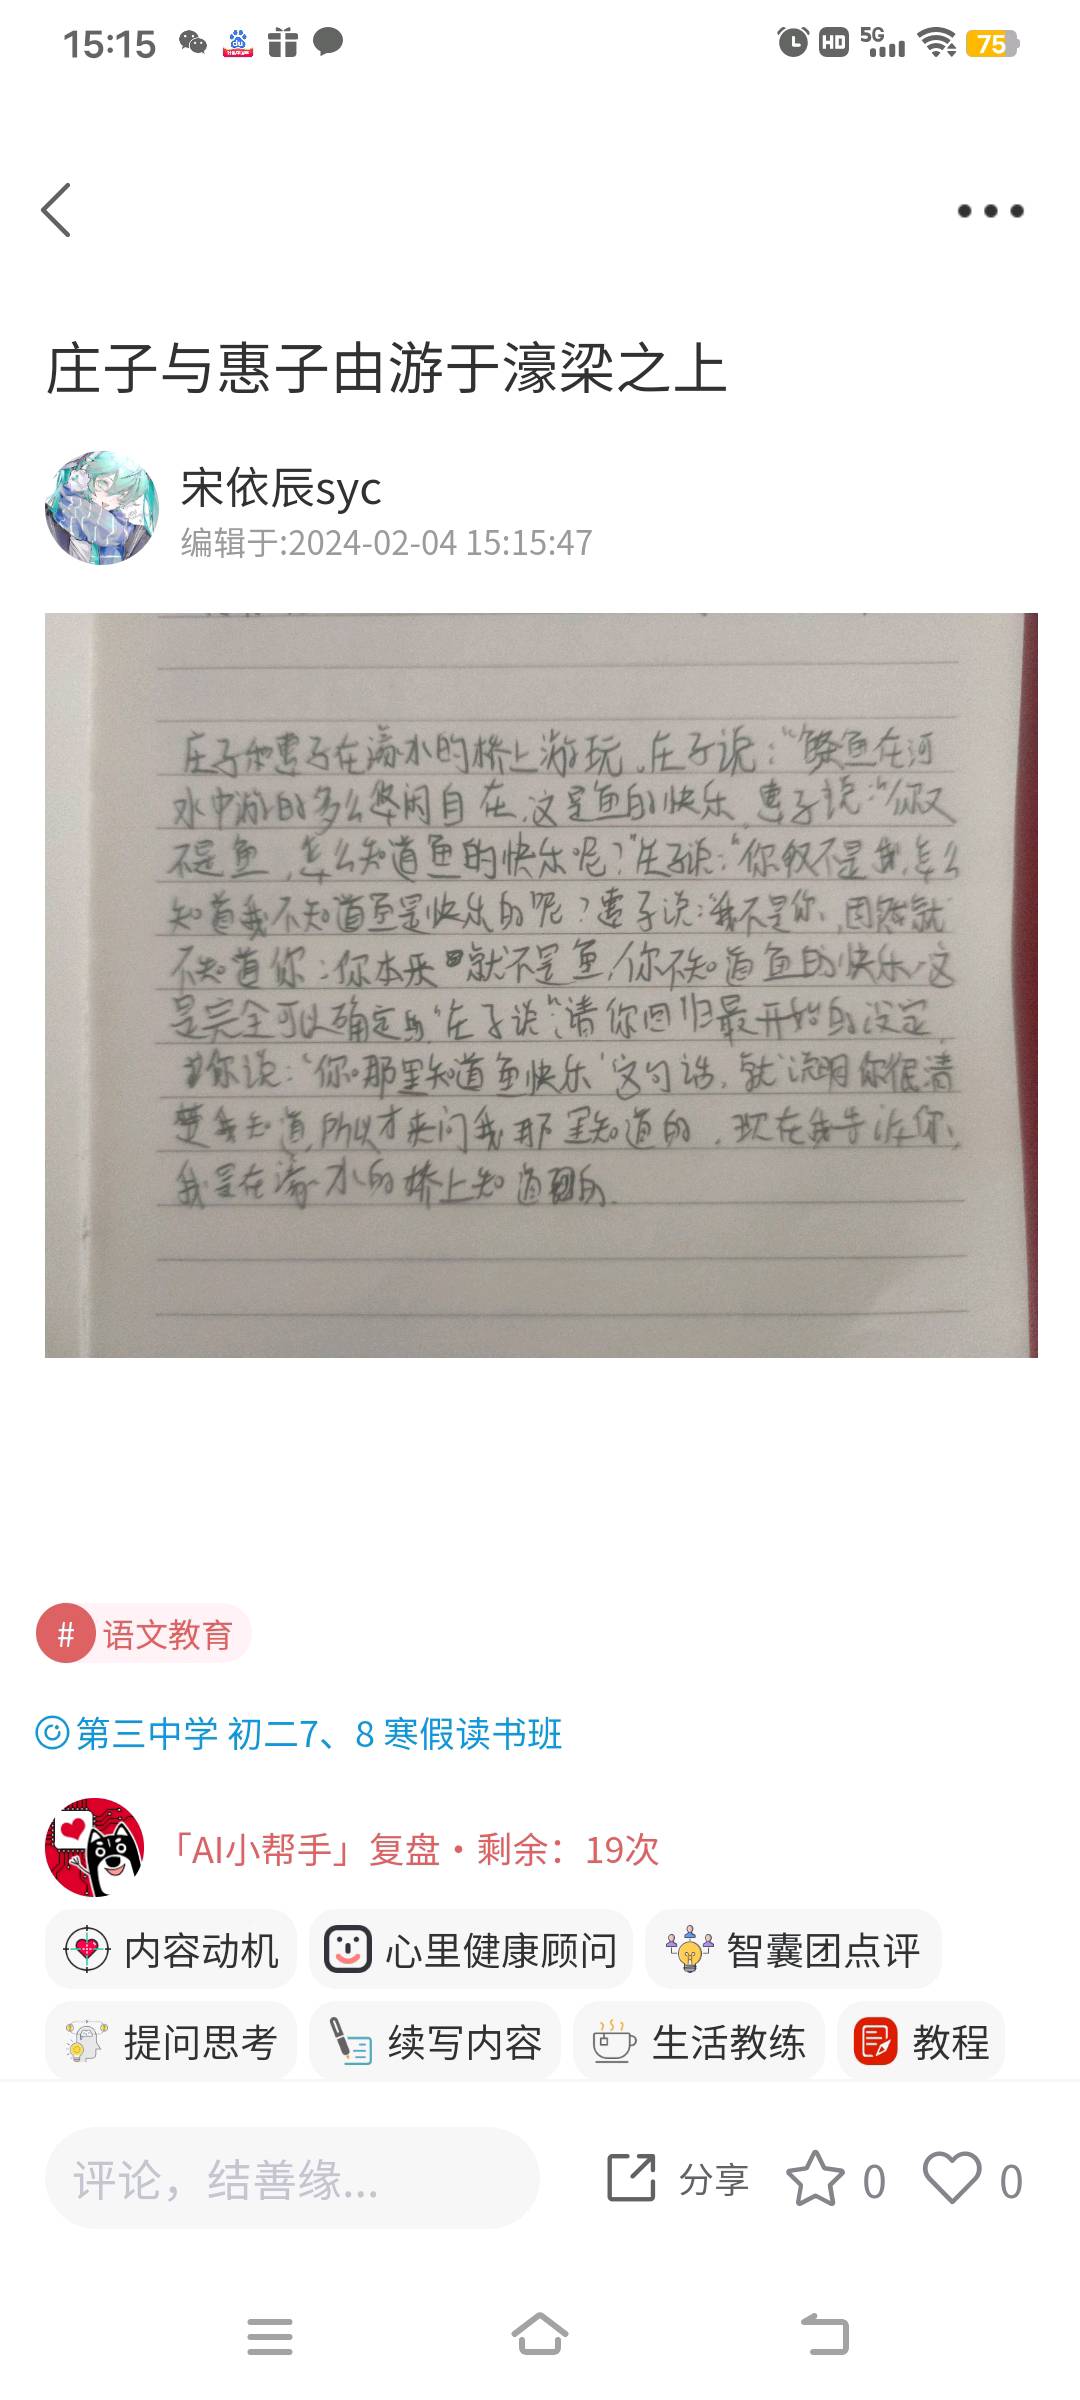 15:15
HD 5G 75
庄子与惠子由游于濠梁之上
宋依辰syc
编辑于:2024-02-04 15:15:47
庄子和惠子在濠水的桥上游玩.庄子说:“鲦鱼在河
水中游的多么悠闲自在,这是鱼的快乐 惠子说:“你又
不是鱼,怎么知道鱼的快乐呢?”庄子说:“你又不是我,怎么
知道我不知道鱼是快乐的呢?惠子说:“我不是你,固然就
不知道你;你本来就不是鱼,你不知道鱼的快乐,这
是完全可以确定的“庄子说:“请你回归最开始的设定,
你说:“你那里知道鱼快乐”这句话,就说明你很清
楚我知道,所以才来问我那里知道的.现在我告诉你,
我是在濠水的桥上知道的.
# 语文教育
第三中学 初二7、8 寒假读书班
「AI小帮手」复盘·剩余：19次
内容动机 心里健康顾问 智囊团点评
提问思考 续写内容 生活教练 教程
评论，结善缘... 分享 0 0